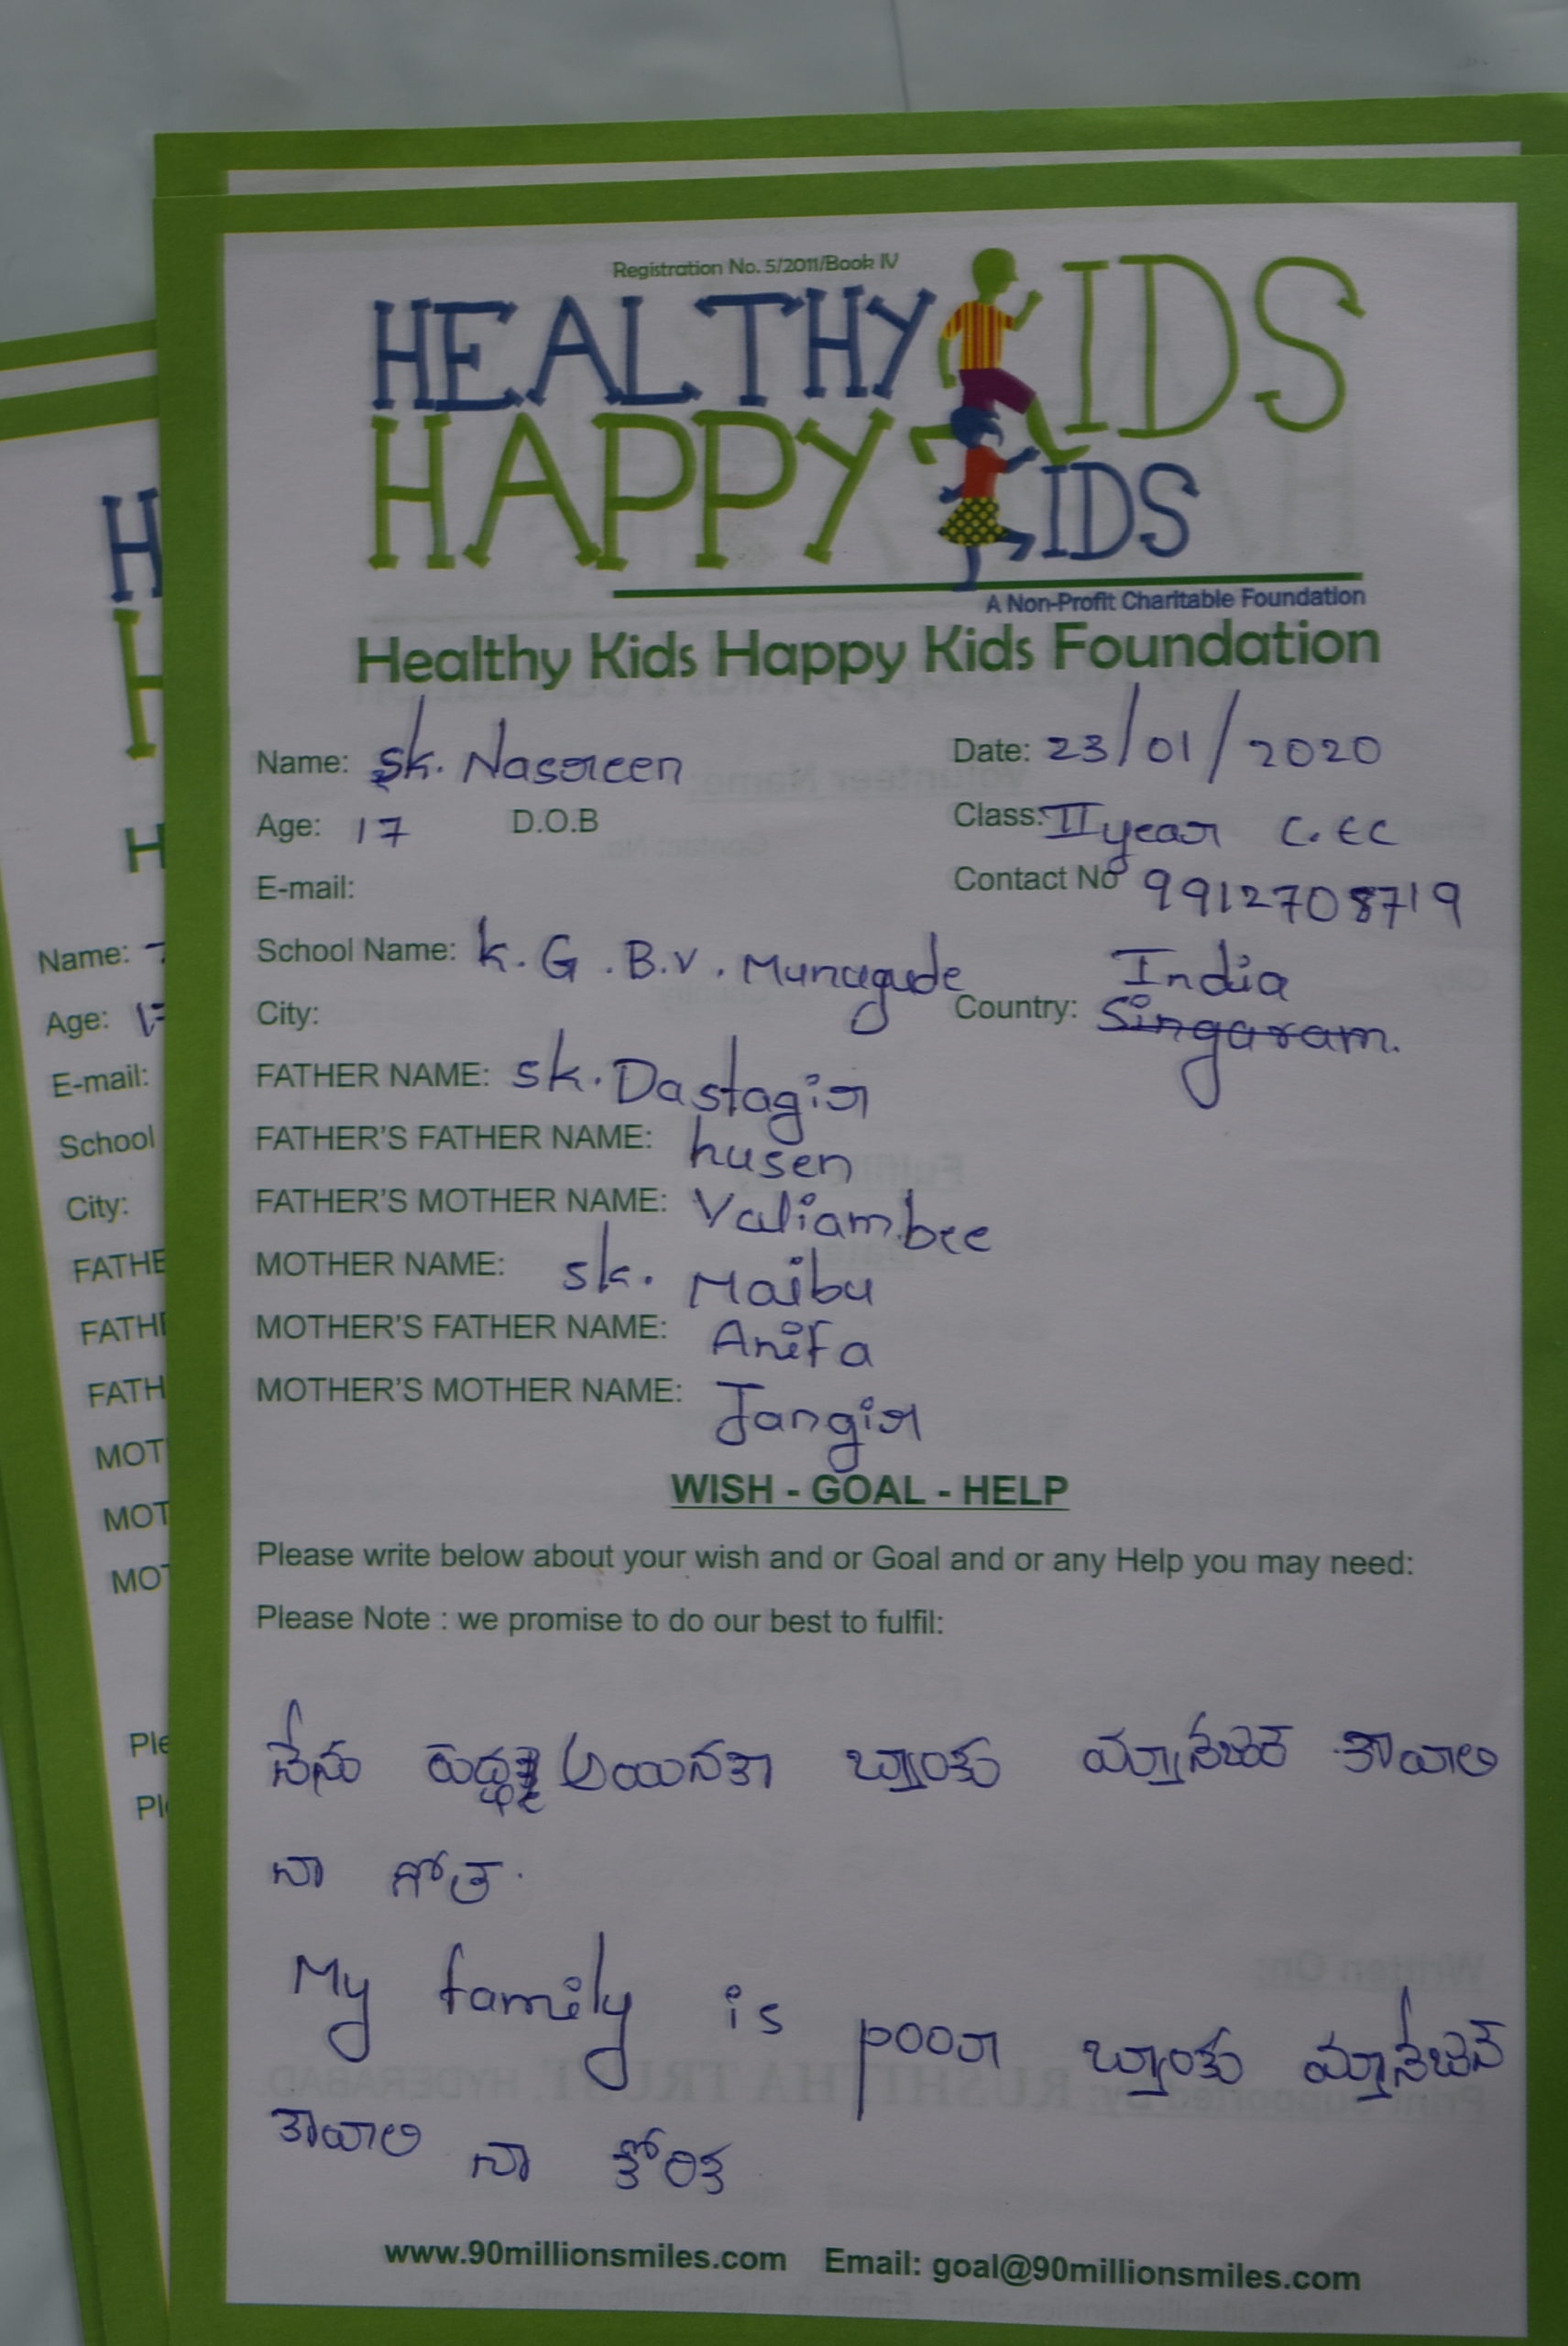 Registration No. 5/2011/Book IV
HEALTHY KIDS
HAPPY KIDS
A Non-Profit Charitable Foundation
Healthy Kids Happy Kids Foundation
Name: Sk. Nasreen Date: 23/01/2020
Age: 17 D.O.B Class: II year C.EC
E-mail: Contact No 9912708719
School Name: K.G.B.V. Munagude India
City: Country: Singaram.
FATHER NAME: Sk. Dastagir
FATHER'S FATHER NAME: husen
FATHER'S MOTHER NAME: Valiambee
MOTHER NAME: Sk. Maibu
MOTHER'S FATHER NAME: Anifa
MOTHER'S MOTHER NAME: Jangir
WISH - GOAL - HELP
Please write below about your wish and or Goal and or any Help you may need:
Please Note : we promise to do our best to fulfil:
నేను బ్యాంకు మ్యానేజర్ కావాలి
నా
My family is poor బ్యాంకు మ్యానేజర్
కావాలి నా కోరిక
www.90millionsmiles.com Email: goal@90millionsmiles.com
Name:
Age:
E-mail:
School
City: